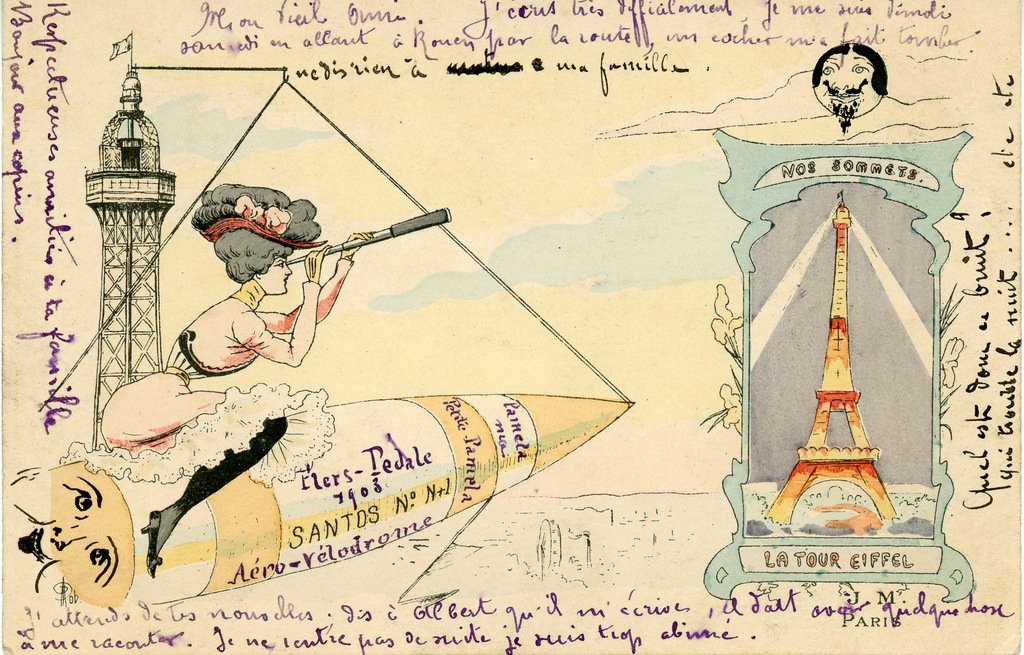 Mon vieil Ami. J'écris très difficilement. Je me suis démoli
samedi en allant à Rouen par la route, un cocher m'a fait tomber.
ne dis rien à ma famille.
Respectueuses amitiés à ta famille
Bonjour aux copins.
NOS SOMMETS.
LA TOUR EIFFEL
J. M.
PARIS
Quel est donc ce bruit,
qui trouble la nuit.... etc etc
Flers-Pédale
1903
SANTOS N° N+1
Aéro-Vélodrome
Petite Pamela
Pamela
J'attends de tes nouvelles. dis à Albert qu'il m'écrive, il doit avoir quelque chose
à me raconter. Je ne rentre pas de suite je suis trop abimé.